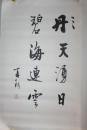 丹天涌日
碧海連雲